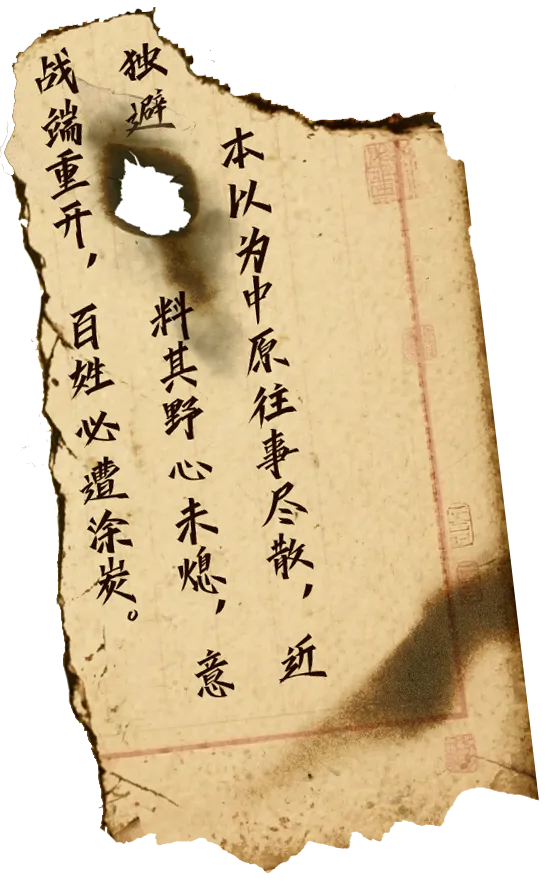 本以为中原往事尽散，近
独避
料其野心未熄，意
战端重开，百姓必遭涂炭。